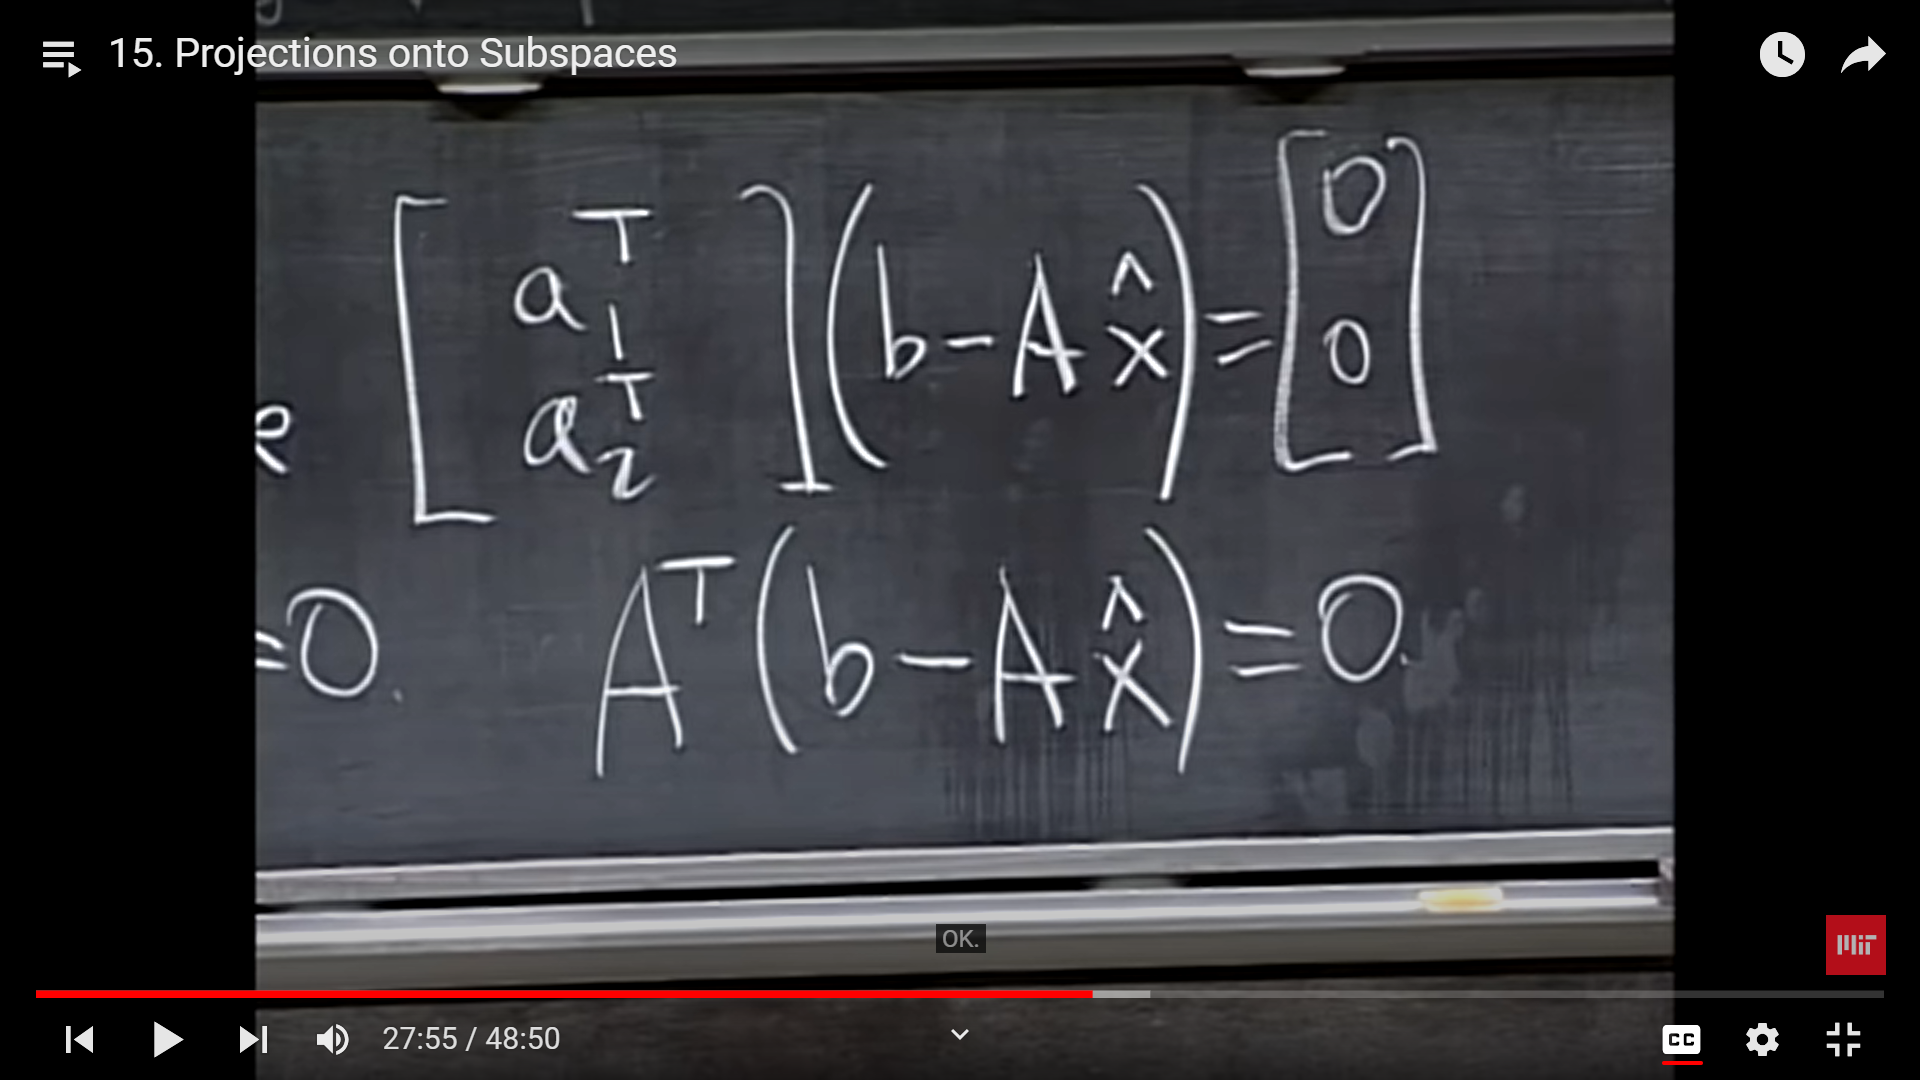 15. Projections onto Subspaces
[a₁ᵀ a₂ᵀ] (b - A x̂) = [0 0]
= 0. Aᵀ (b - A x̂) = 0.
OK.
MIT
27:55 / 48:50
CC